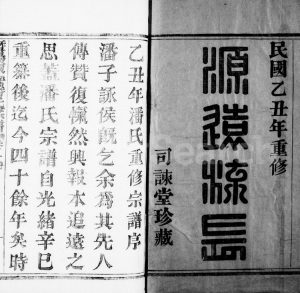 民國乙丑年重修
源遠流長
司諫堂珍藏
乙丑年潘氏重修宗譜序
潘子詠侯既乞余為其先人
傳贊復慨然興報本追遠之
思蓋潘氏宗譜自光緒辛巳
重纂後迄今四十餘年矣時